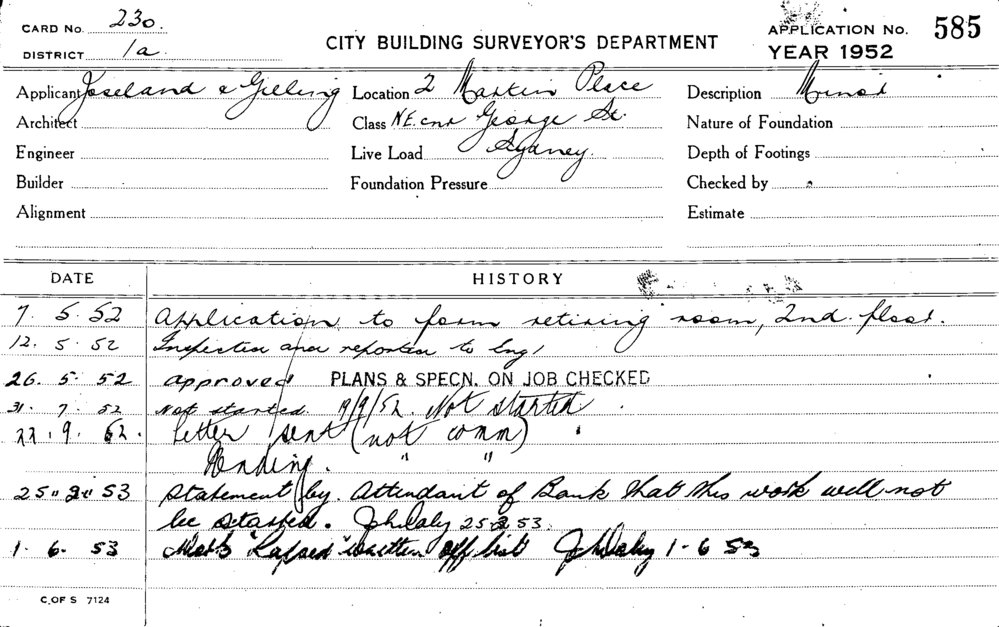 CARD No. 230.
DISTRICT 1a.
CITY BUILDING SURVEYOR'S DEPARTMENT
APPLICATION No. 585
YEAR 1952
Applicant Joseland & Gilling
Location 2 Martin Place
Description Minor
Architect
Class N.E. cnr George St.
Nature of Foundation
Engineer
Live Load Sydney.
Depth of Footings
Builder
Foundation Pressure
Checked by
Alignment
Estimate
DATE HISTORY
7. 5. 52 Application to form retiring room, 2nd. floor.
12. 5. 52 Inspected and reported to Eng/
26. 5. 52 approved PLANS & SPECN. ON JOB CHECKED
31. 7. 52 Not started. 19/9/52. Not started
22. 9. 52. letter sent (not comm)
Pending. " "
25. 2. 53 Statement by. Attendant of Bank that this work will not
be started. J Daly 25.2.53.
1. 6. 53 "Lapsed" written off list J Daly 1-6 53
C. OF S 7124